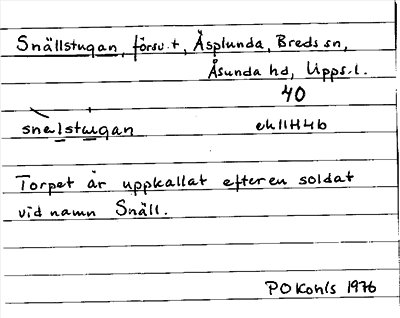 Snällstugan, försv. t, Äsplunda, Breds sn,
Åsunda hd, Upps. l.
40
snelstugan ek 11H4b
Torpet är uppkallat efter en soldat
vid namn Snäll.
P O Kohls 1976